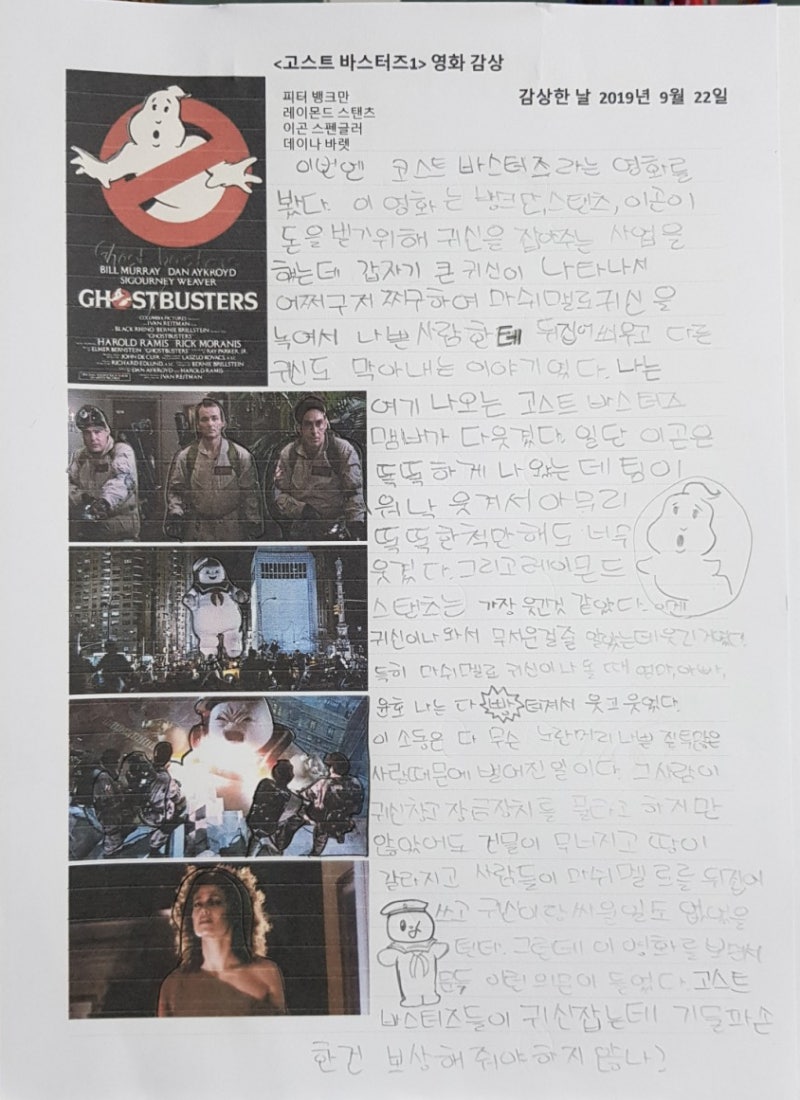 <고스트 바스터즈1> 영화 감상
피터 뱅크만
레이몬드 스탠츠
이곤 스펜글러
데이나 바렛
감상한 날 2019년 9월 22일
Ghost busters
BILL MURRAY DAN AYKROYD
SIGOURNEY WEAVER
GHOSTBUSTERS
COLUMBIA PICTURES
IVAN REITMAN
BLACK RHINO BERNIE BRILLSTEIN
"GHOSTBUSTERS"
HAROLD RAMIS RICK MORANIS
ELMER BERNSTEIN "GHOSTBUSTERS" RAY PARKER, JR.
JOHN DE CUIR LASZLO KOVACS
RICHARD EDLUND BERNIE BRILLSTEIN
DAN AYKROYD HAROLD RAMIS
IVAN REITMAN
이번엔 고스트 바스터즈라는 영화를
봤다. 이 영화는 뱅크만,스탠츠, 이곤이
돈을 벌기위해 귀신을 잡아주는 사업을
해는데 갑자기 큰 귀신이 나타나서
어쩌구저쩌구하여 마쉬멜로귀신을
녹여서 나쁜사람한테 뒤집어씌우고 다른
귀신도 막아내는 이야기였다. 나는
여기 나오는 고스트 바스터즈
맴버가 다웃겼다. 일단 이곤은
똑똑하게 나왔는데 팅이
워낙 웃겨서아무리
똑똑한척만해도 너무
웃겼다. 그리고레이몬드
스탠츠는 가장 웃긴것 같았다.
귀신이나와서 무서운걸줄 알았는데웃긴거였다.
특히 마쉬멜로 귀신이나올 때 엄마,아빠,
윤호 나는 다 빵 터져서 웃고 웃었다.
이 소동은 다 무슨 노란머리 나쁜 질투많은
사람때문에 벌어진일이다. 그사람이
귀신창고 잠금장치를 풀라고 하지만
않았어도 건물이 무너지고 땅이
갈라지고 사람들이 마쉬멜로를 뒤집어
쓰고 귀신이랑싸울일도 없었을
텐데. 그런데 이 영화를 보면서
문득 이런 의문이 들었다. 고스트
바스터즈들이 귀신잡는데 기물파손
한건 보상해줘야하지 않나?